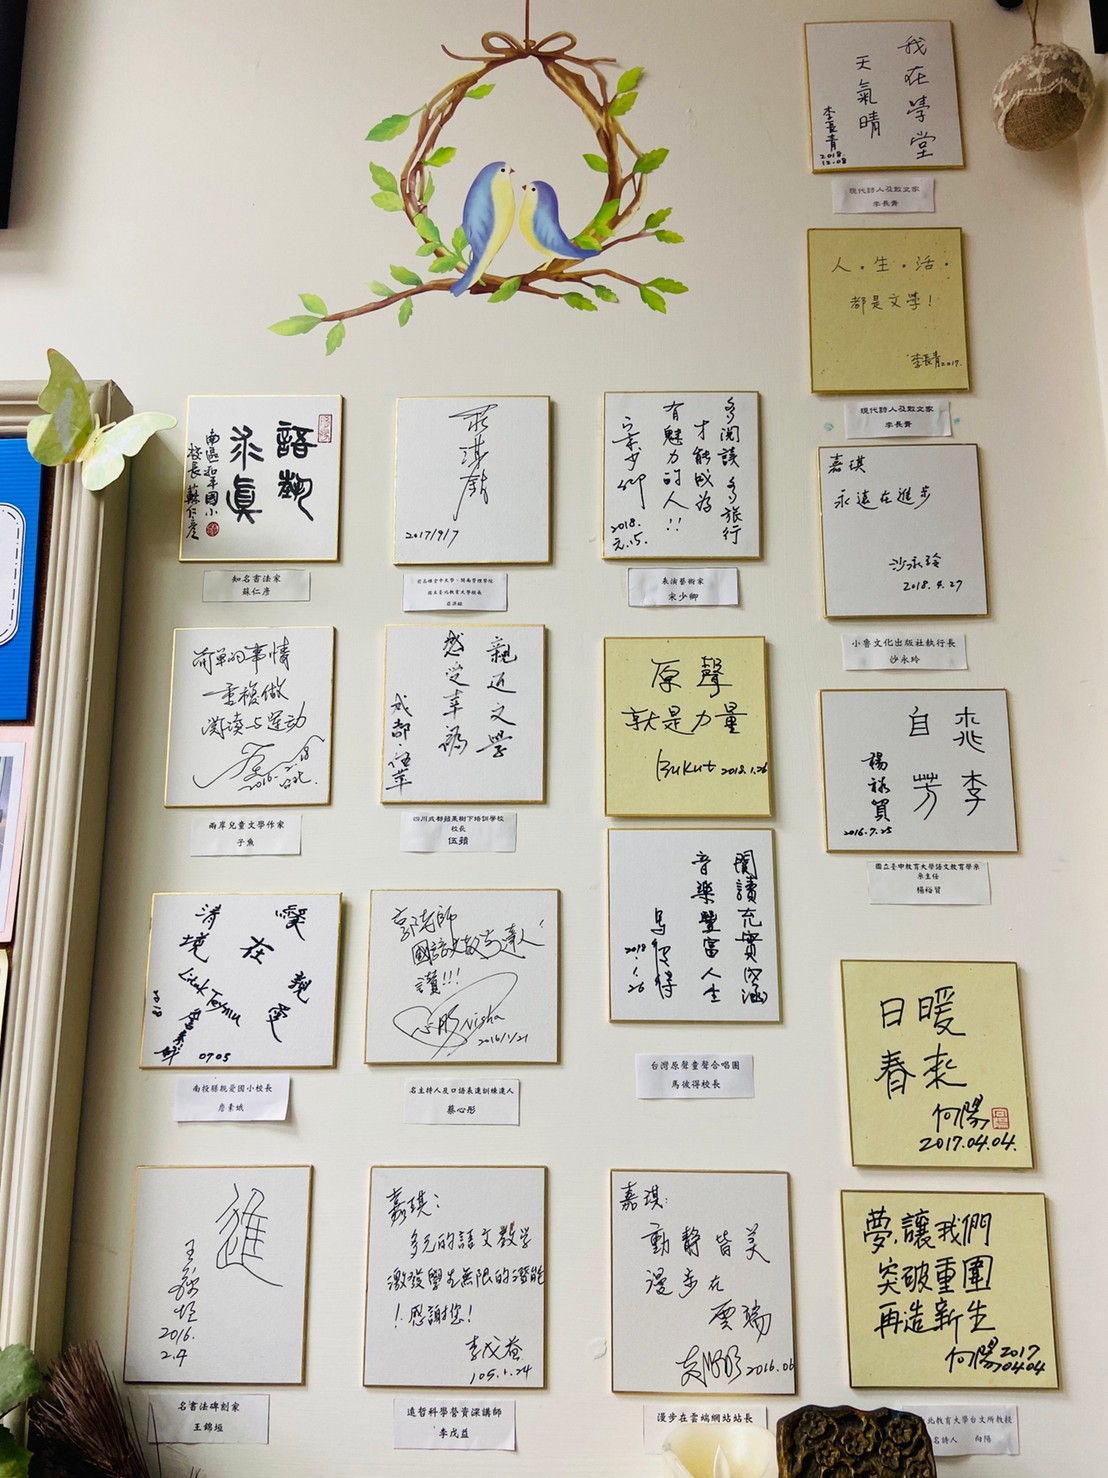 我在學堂
天氣晴
李長青
2018.
12.08
現代詩人及散文家
李長青
人・生・活・
都是文學!
李長青2017.
現代詩人及散文家
李長青
語勲
永真
南區和平國小
校長 蘇仁彥
知名書法家
蘇仁彥
2017/9/7
多閱讀多旅行
才能成為
有魅力的人!!
宋少卿
2018.
元.15.
表演藝術家
宋少卿
嘉琪
永遠在進步
沙永玲
2018.4.27
小魯文化出版社執行長
沙永玲
简单的事情
重複做
阅读与运动
兩岸兒童文學作家
子魚
親近文學
感受幸福
成都・伍苹
四川成都蘋果樹下培訓學校
校長
伍蘋
原聲
就是力量
Bukut 2018.1.26
桃李
自芳
楊裕貿
2016.7.25
國立臺中教育大學語文教育學系
系主任
楊裕貿
愛在親愛
清境
0705
南投縣親愛國小校長
詹素娥
郭老師
讚!!!
Nisha
2016/1/21
名主持人及口語表達訓練達人
蔡心彤
閱讀充實內涵
音樂豐富人生
馬彼得
2018
1.26
台灣原聲童聲合唱團
馬彼得校長
日暖
春來
向陽
2017.04.04.
進
王錦垣
2016.
2.4
名書法碑刻家
王錦垣
嘉琪:
多元的語文教学
激發學生無限的潛能
!感謝您!
李戊益
105.1.24
遠哲科學營資深講師
李戊益
嘉琪:
動靜皆美
漫步在
雲端
2016.06
漫步在雲端網站站長
夢,讓我們
突破重圍
再造新生
向陽2017
0404
北教育大學台文所教授
名詩人 向陽